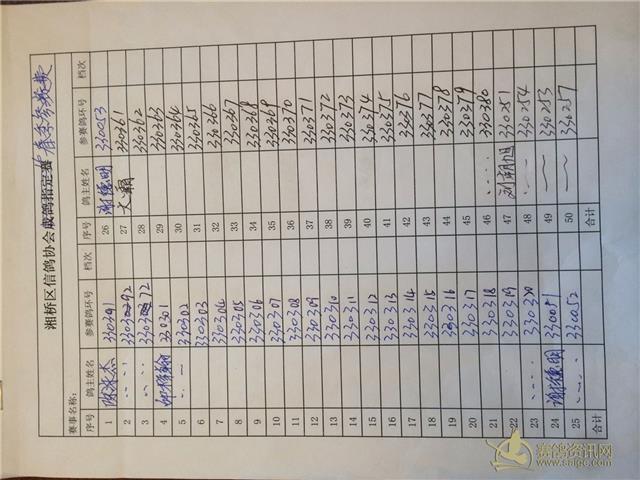 湘桥区信鸽协会成鸽指定赛 春季参赛费
赛事名称：
序号 鸽主姓名 参赛鸽环号 档次 序号 鸽主姓名 参赛鸽环号 档次
1 330291 26 谢德明 330053
2 330292 27 大顺 330361
3 330272 28 330362
4 330301 29 330363
5 330302 30 330364
6 330303 31 330365
7 330304 32 330366
8 330305 33 330367
9 330306 34 330368
10 330307 35 330369
11 330308 36 330370
12 330309 37 330371
13 330310 38 330372
14 330311 39 330373
15 330312 40 330374
16 330313 41 330375
17 330314 42 330376
18 330315 43 330377
19 330316 44 330378
20 330317 45 330379
21 330318 46 330380
22 330319 47 330251
23 330320 48 330254
24 谢德明 330051 49 330253
25 330052 50 330257
合计 合计
赛鸽资讯网
www.saige.com